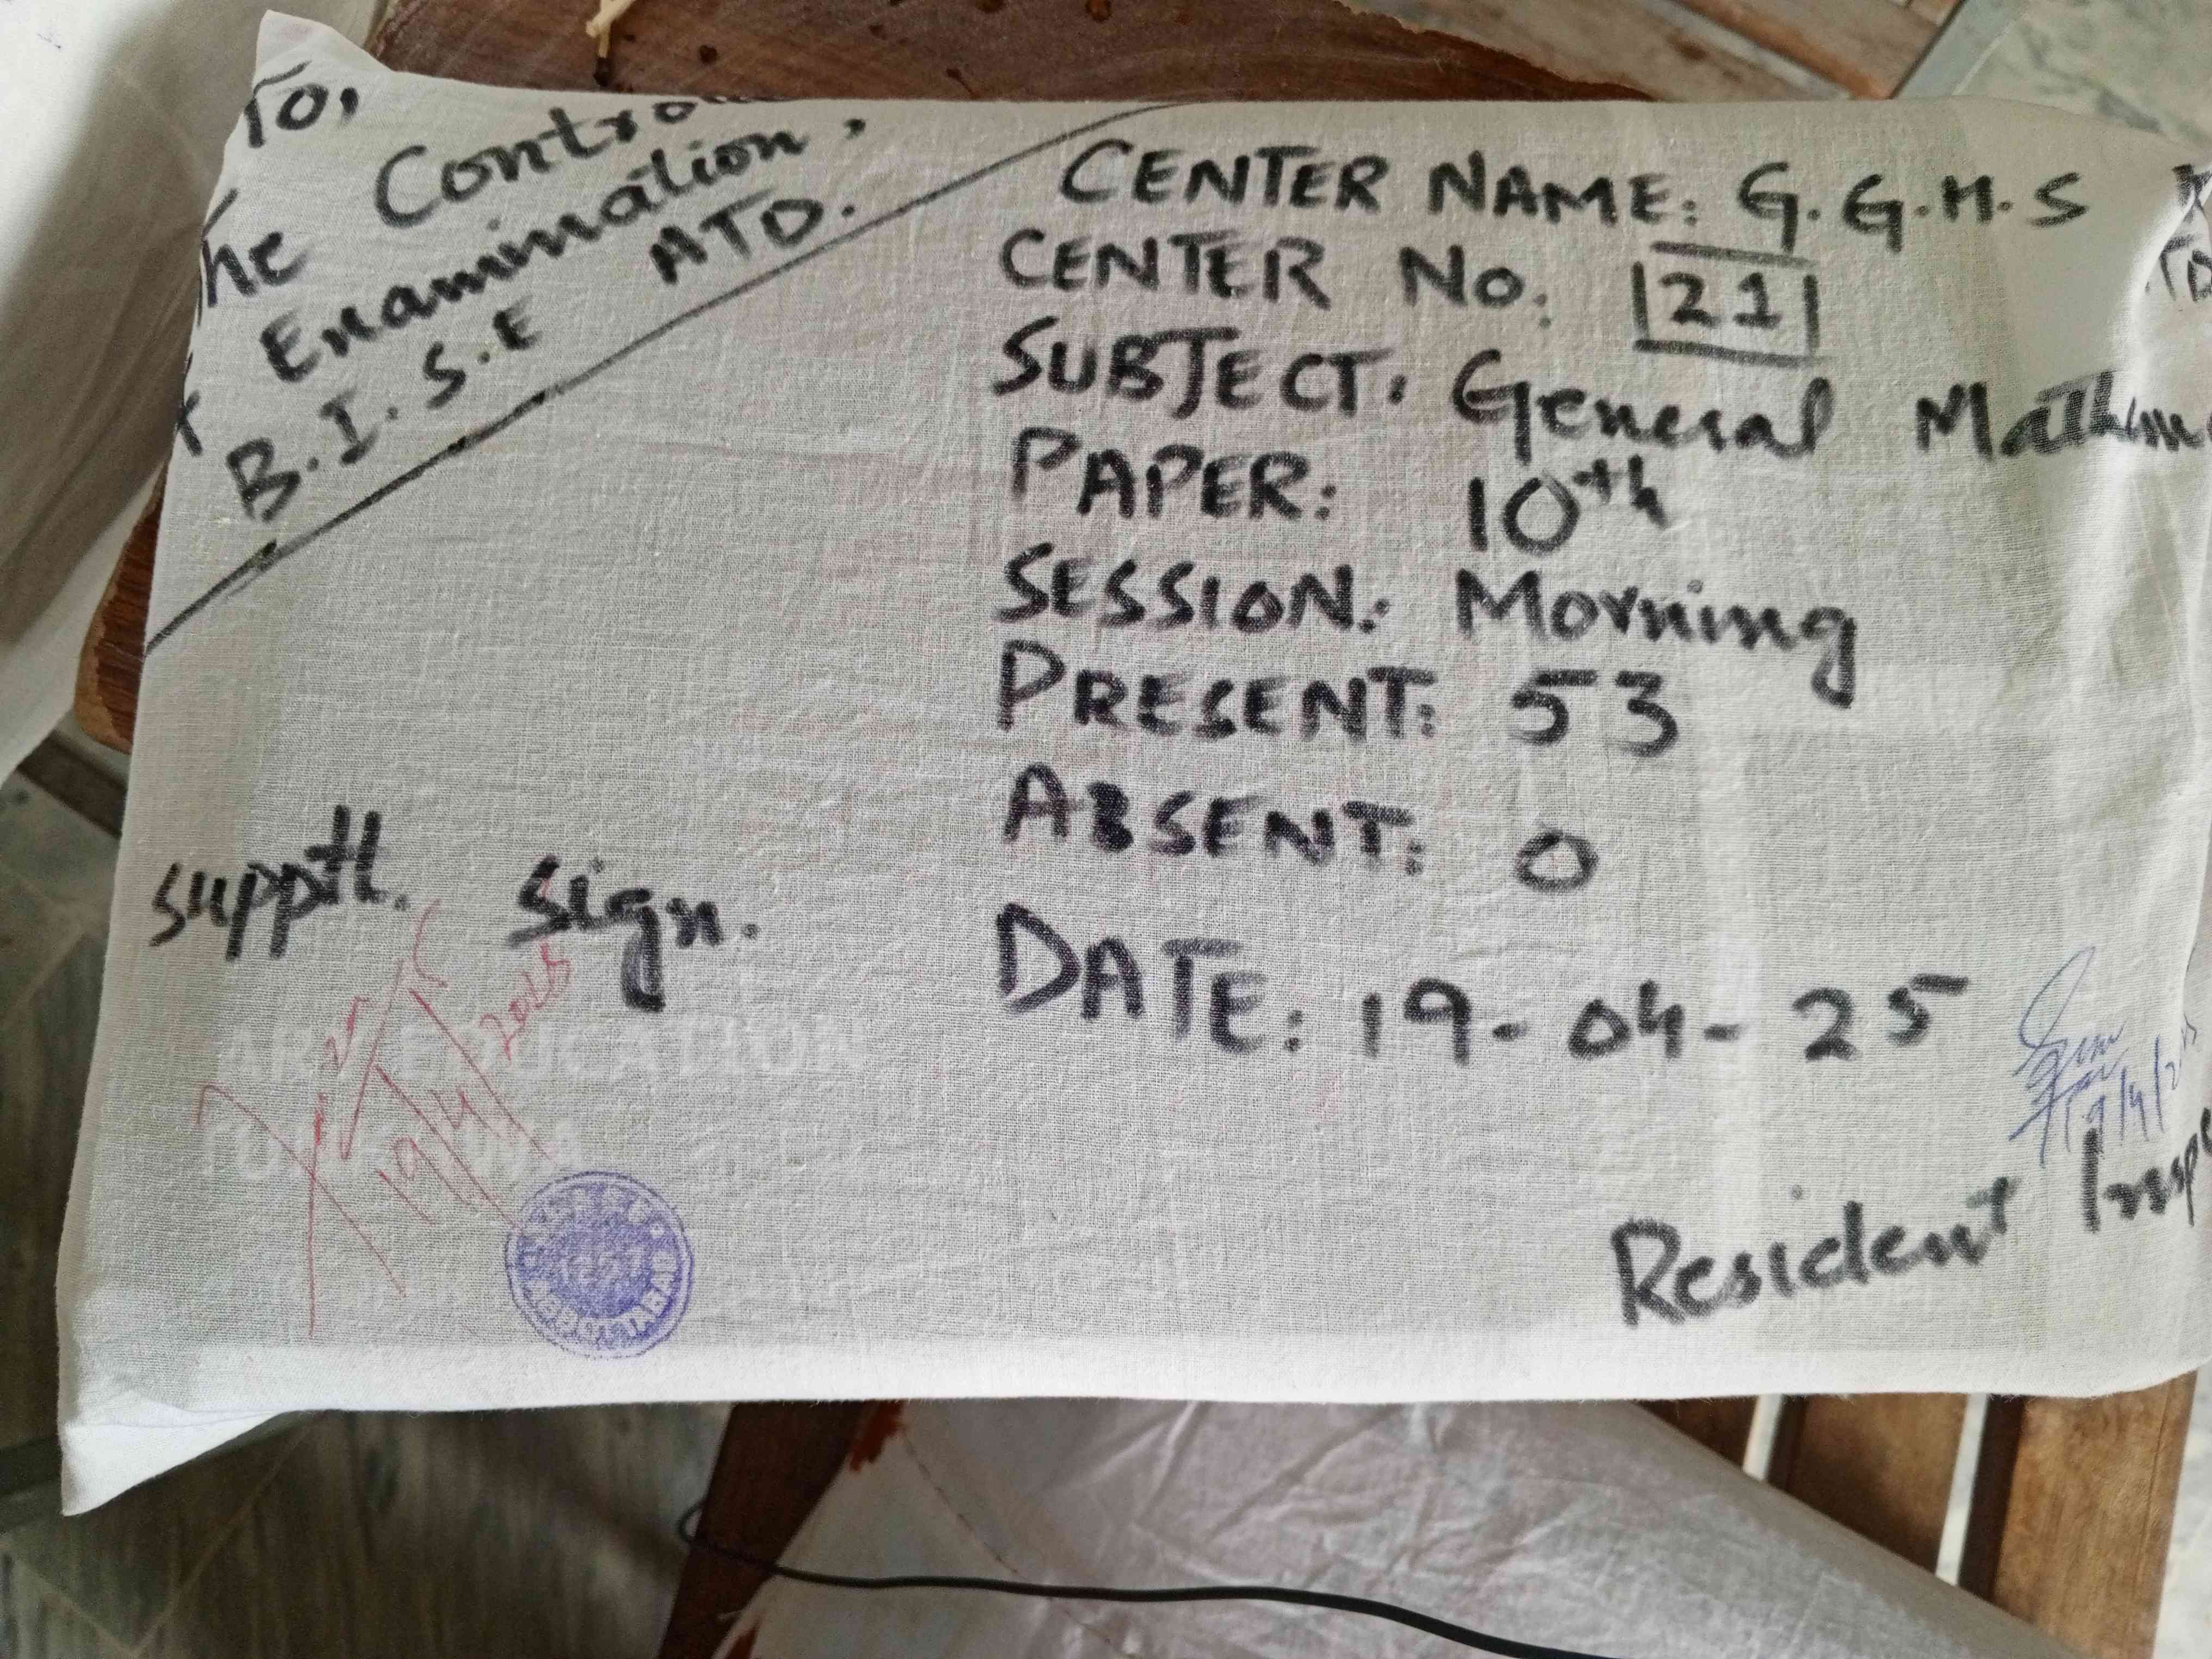 To,
The Contro
of Examination,
B.I.S.E ATD.
CENTER NAME: G.G.H.S
CENTER No: 21
SUBJECT: General Mathem
PAPER: 10th
SESSION: Morning
PRESENT: 53
ABSENT: 0
DATE: 19-04-25
supptt. sign.
19/4/2025
19/4/2
Resident Insp
ABBOTTABAD